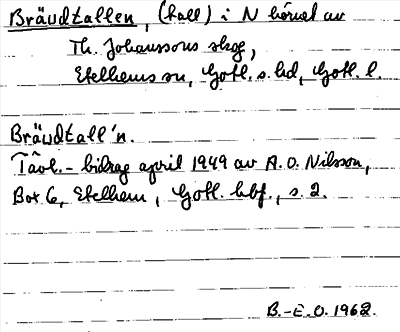 Bräudtallen, (tall) i N hörnet av
Th. Johanssons skog,
Etelhems sn, Gotl. s. hd, Gotl. l.
Bräudtall'n.
Tävl.-bidrag april 1949 av A. O. Nilsson,
Box 6, Etelhem, Gotl. hbf., s. 2.
B.-E. O. 1962.